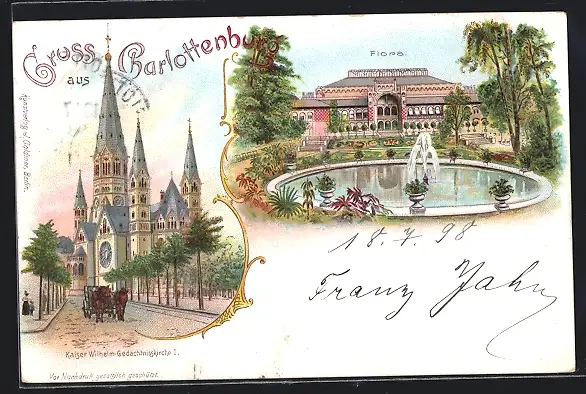 Gruss
aus
Charlottenburg
Flora.
18.7.98
Franz Jahn
Kaiser Wilhelm-Gedächtnisskirche I.
Vor Nachdruck gesetzlich geschützt.